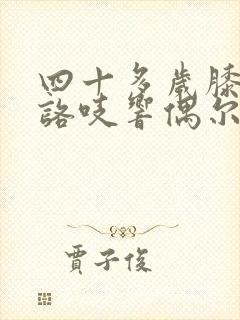 四十多歲膝
詻吱響偶尔
賈子俊